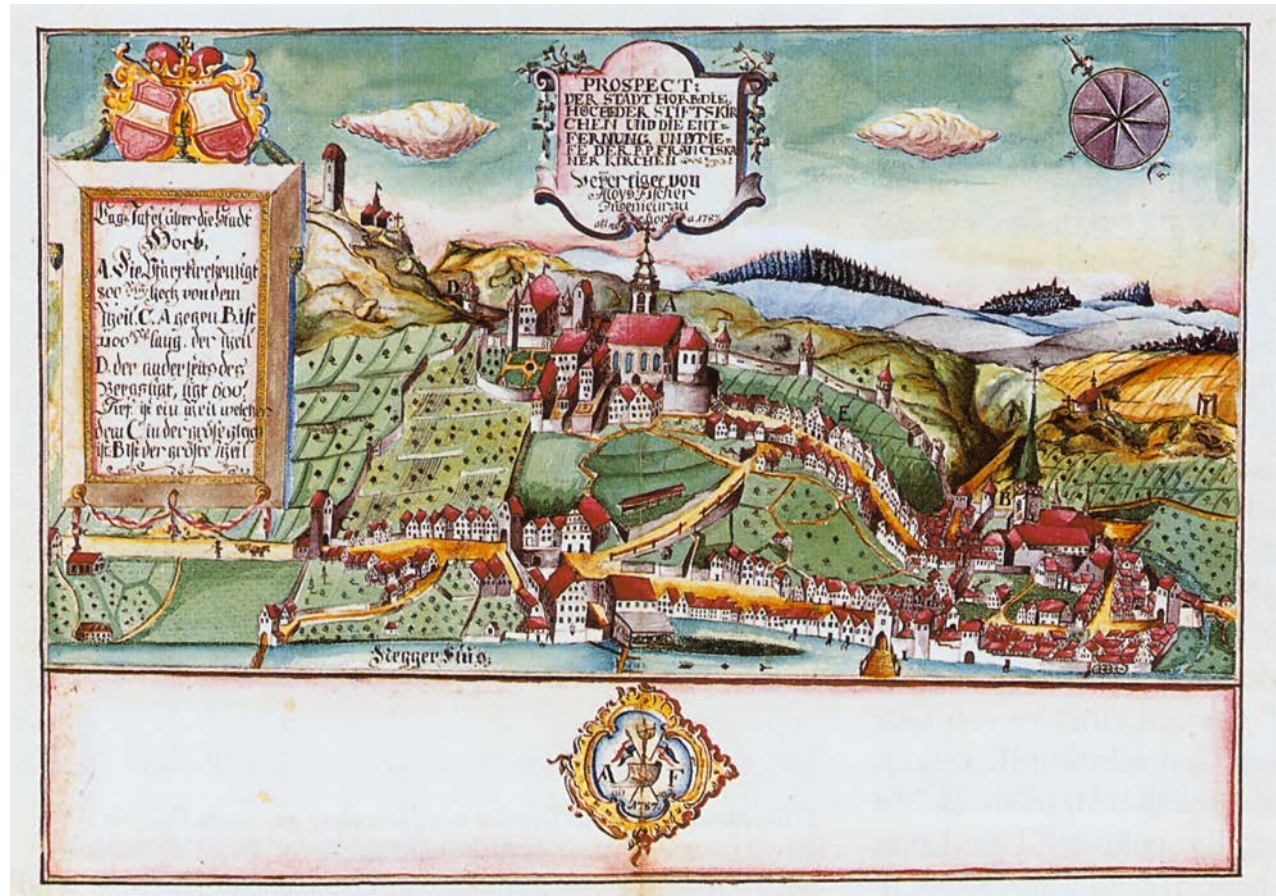 PROSPECT:
DER STADT HORB DIE
HÖCHE DER STIFTSKIR
CHEN UND DIE ENT=
FERNUNG UND TIE=
FE DER P.P. FRANCISKA
NER KIRCHEN
Verfertiget von
Aloys Fischer
Ingenieur zu
Horb a. 1787.
Lag Tafel über die Stadt
Horb,
A. Die Pfarrkirchen ligt
800 hoch von dem
theil C. A gegen B ist
1100 lang. der theil
D. der anderseits des
Bergs ligt, ligt 600'
Tief. ist ein theil welcher
dem C in der größe gleich
ist. B ist der größte theil
D
C
A
E
B
Negger Fluß.
A F
1787.